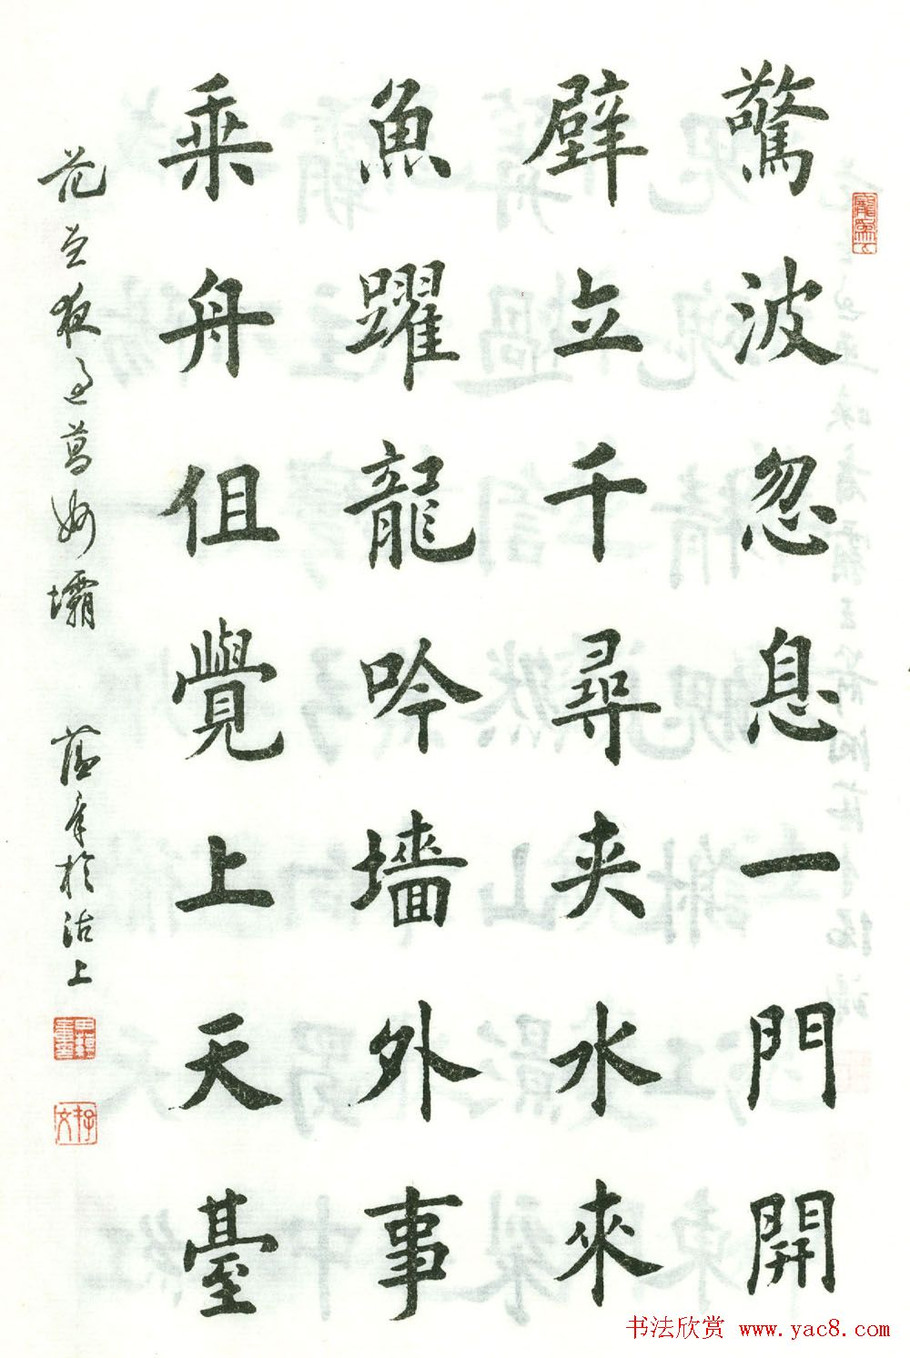 驚波忽息一門開
壁立千尋夾水來
魚躍龍吟墻外事
乘舟但覺上天臺
范公夜過葛洲壩
蘊章於沽上
书法欣赏 www.yac8.com